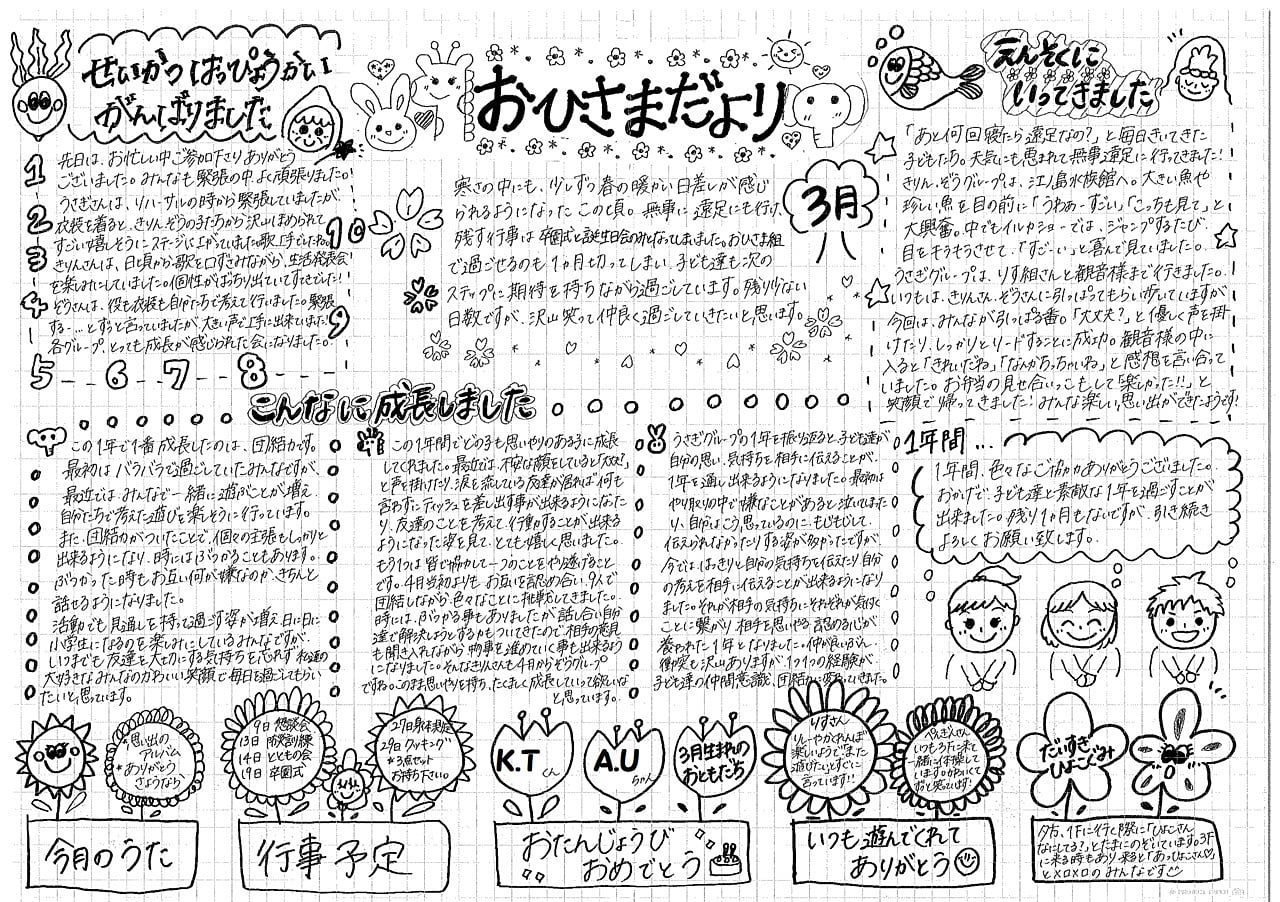 せいかつはっぴょうかい
がんばりました
先日は、お忙しい中ご参加下さりありがとう
ございました。みんなも緊張の中よく頑張りました。
うさぎさんは、リハーサルの時から緊張していましたが、
衣装を着ると、きりん、ぞうの子たちから沢山ほめられて
すごい嬉しそうにステージに上がていました。歌上手でしたね。
きりんさんは、日頃から歌を口ずさみながら、生活発表会
を楽しみにしていました。個性がばっちり出ていてすてきでした!
ぞうさんは、役も衣装も自分たちで考えて行いました。緊張
する…とずっと言っていましたが、大きい声で上手に出来ていました!
各グループ、とっても成長が感じられた会になりました。
1
2
3
4
5
6
7
8
9
10
おひさまだより
3月
寒さの中にも、少しずつ春の暖かい日差しが感じ
られるようになったこの頃。無事に遠足にも行け、
残す行事は卒園式と誕生日会のみとなってしまいました。おひさま組
で過ごせるのも1ヵ月切ってしまい、子ども達も次の
ステップに期待を持ちながら過ごしています。残り少ない
日数ですが、沢山笑って仲良く過ごしていきたいと思います。
えんそくに
いってきました
「あと何回寝たら遠足なの?」と毎日きいてきた
子どもたち。天気にも恵まれて無事遠足に行ってきました!
きりん、ぞうグループは、江ノ島水族館へ。大きい魚や
珍しい魚を目の前に「うわぁーすごい」「こっちも見て」と
大興奮。中でもイルカショーでは、ジャンプするたび、
目をキラキラさせて、「すごーい」と喜んで見ていました。
うさぎグループは、りす組さんと観音様まで行きました。
いつもは、きりんさん、ぞうさんに引っぱってもらい歩いていますが
今回は、みんなが引っぱる番。「大丈夫?」と優しく声を掛
けたり、しっかりとリードすることに成功。観音様の中に
入ると「きれいだね」「なんかちっちゃいね」と感想を言い合って
いました。お弁当の見せ合いっこもして「楽しかった!!」と
笑顔で帰ってきました!みんな楽しい思い出ができたようです!
こんなに成長しました
この1年で1番成長したのは、団結力です。
最初はバラバラで過ごしていたみんなですが、
最近では、みんなで一緒に遊ぶことが増え
自分たちで考えた遊びを楽しそうに行っています。
また、団結力がついたことで、個々の主張もしっかりと
出来るようになり、時にはぶつかることもあります。
ぶつかった時もお互い何が嫌なのか、きちんと
話せるようになりました。
活動でも見通しを持って過ごす姿が増え、日に日に
小学生になるのを楽しみにしているみんなですが、
いつまでも友達を大切にする気持ちを忘れず 私達の
大好きなみんなのかわいい笑顔で毎日を過ごしてもらい
たいと思っています。
この1年間でどの子も思いやりのある子に成長
してくれました。最近では、不安な顔をしていると「大丈夫?」
と声を掛けたり、涙を流している友達が居れば何も
言わずにティッシュを差し出す事が出来るようになった
り、友達のことを考えて、行動することが出来る
ようになった姿を見て、とても嬉しく思いました。
もう1つは皆で協力して一つのことをやり遂げること
です。4月当初よりも お互いを認め合い、9人で
団結しながら、色々なことに挑戦してきました。
時には、ぶつかる事もありましたが、話し合い自分
達で解決しようとする力もついてきたので相手の意見
も聞き入れながら物事を進めていく事も出来るよう
になりました。そんなきりんさんも4月からぞうグループ
ですね。このまま思いやりを持ち、たくましく成長していって欲しいな
と思っています。
うさぎグループの1年を振り返ると、子ども達が
自分の思い、気持ちを相手に伝えることが、
1年を通し出来るようになりました。最初は
やり取りの中で嫌なことがあると泣いてしまた
り、自分はこう思っているのに、もじもじして
伝えられなかったりする姿が多かったですが、
今では、はっきりと自分の気持ちを伝えたり、自分
の考えを相手に伝えることが出来るようになり
ました。それが相手の気持ちにそれぞれが気付く
ことに繋がり、相手を思いやる、認める心が
養われた1年となりました。仲が良いぶん、
衝突も沢山ありますが、1つ1つの経験が、
子ども達の仲間意識、団結力に変わっていきました。
1年間…
1年間、色々なご協力ありがとうございました。
おかげで、子ども達と素敵な1年を過ごすことが
出来ました。残り1ヵ月もないですが、引き続き
よろしくお願い致します。
*思い出の
アルバム
*ありがとう
さようなら
今月のうた
9日 懇談会
13日 防災訓練
14日 とともの会
19日 卒園式
27日身体測定
29日クッキング
*3点セット
お持ち下さい。
行事予定
K.Tくん
A.Uちゃん
3月生まれの
おともだち
おたんじょうび
おめでとう
りすさん
リレーやかくれんぼ
楽しいようでまた
遊びたいとすぐに
言っています!!
ぺんぎんさん
いつも3Fに来て
一緒に体操して
いますのかわいくて
ずっと見ています!
いつも遊んでくれて
ありがとう
だいすき
ひよこぐみ
夕方、1Fに行く際に「ひよこさん
なにしてる?」とたまにのぞいています。3F
に来る時もあり、来ると「あっひよこさん♡」
とメロメロのみんなです